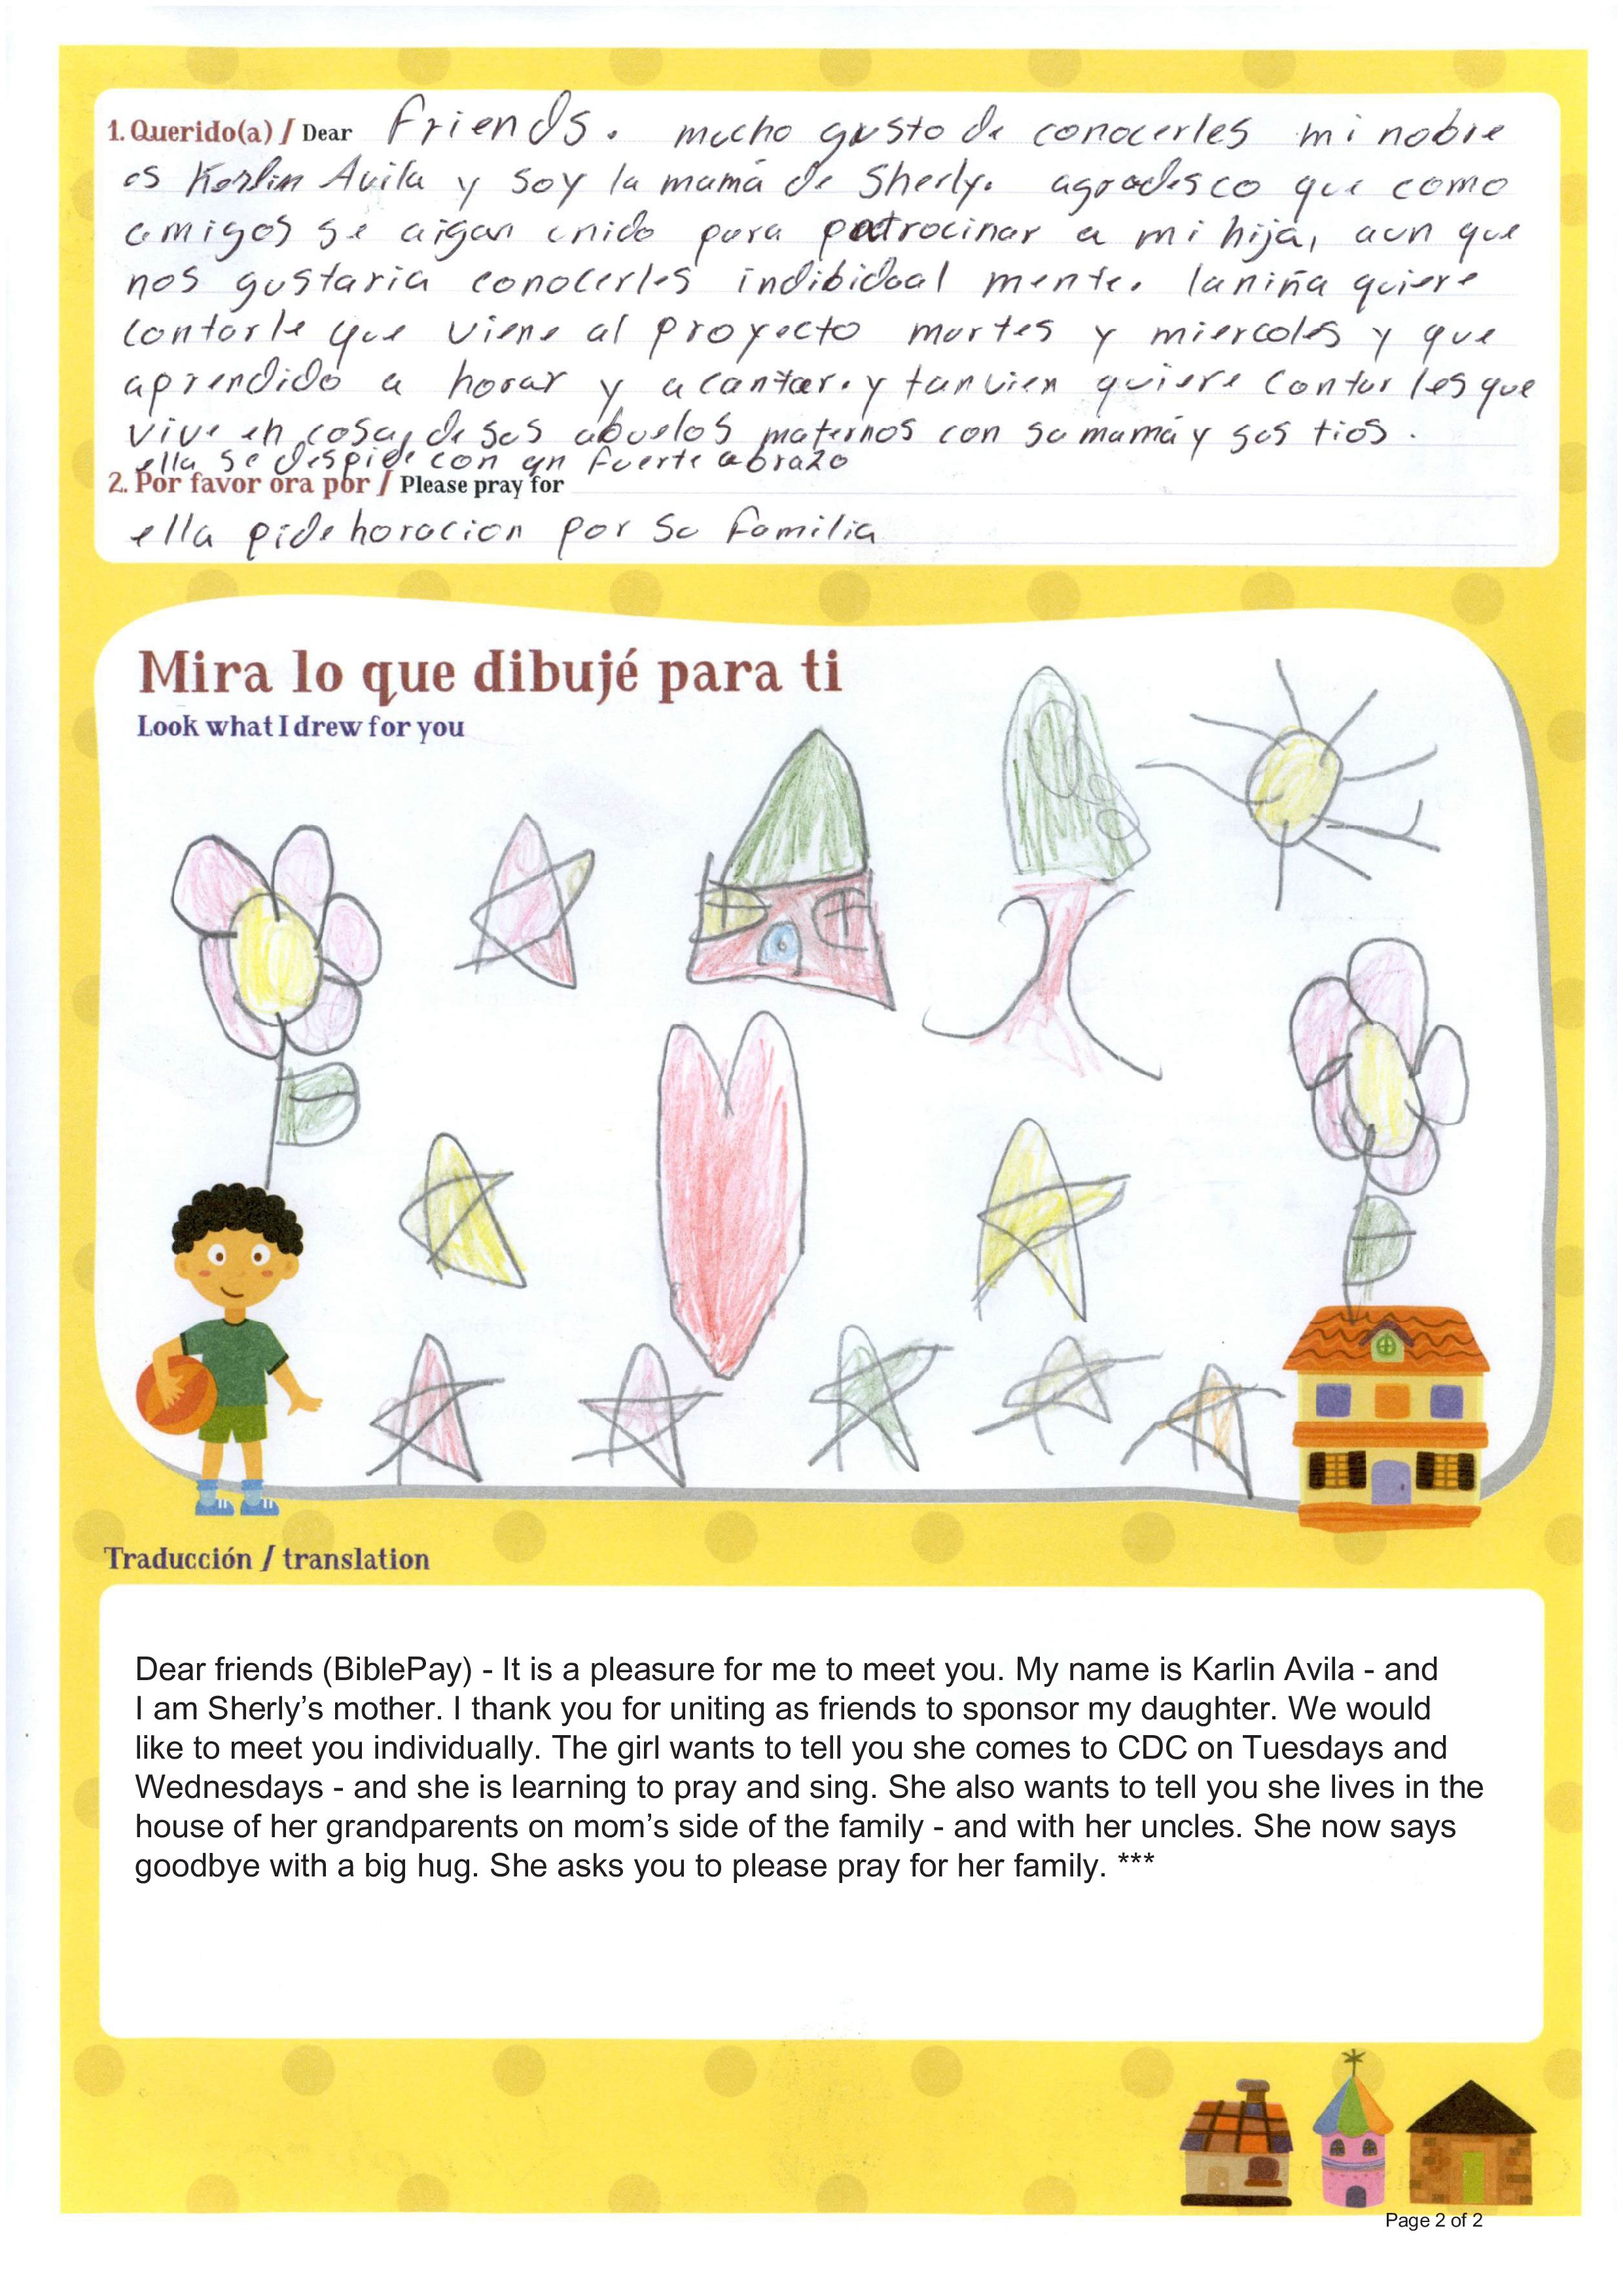 1. Querido(a) / Dear Friends. mucho gusto de conocerles mi nobre
es Kerlin Avila y soy la mamá de Sherly. agradesco que como
amigos se aigan unido para patrocinar a mi hija, aun que
nos gustaria conocerles indibidual mente. la niña quiere
contarle que viene al proyecto martes y miercoles y que
aprendido a horar y a cantar. y tanvien quiere contarles que
vive en cosa, de sus abuelos maternos con su mamá y sus tios.
ella se despide con un fuerte abrazo
2. Por favor ora por / Please pray for
ella pide horacion por su familia
Mira lo que dibujé para ti
Look what I drew for you
Traducción / translation
Dear friends (BiblePay) - It is a pleasure for me to meet you. My name is Karlin Avila - and
I am Sherly's mother. I thank you for uniting as friends to sponsor my daughter. We would
like to meet you individually. The girl wants to tell you she comes to CDC on Tuesdays and
Wednesdays - and she is learning to pray and sing. She also wants to tell you she lives in the
house of her grandparents on mom's side of the family - and with her uncles. She now says
goodbye with a big hug. She asks you to please pray for her family. ***
Page 2 of 2